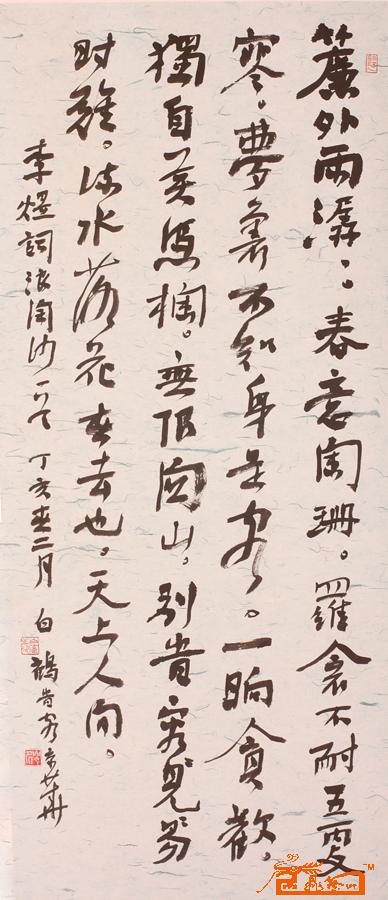 簾外雨潺。春意闌珊。羅衾不耐五更
寒。夢裏不知身是客。一晌貪歡。
獨自莫憑欄。無限関山。別时容易見
时難。流水落花春去也。天上人间。
李煜詞浪淘沙一首 丁亥春二月 白 鶴